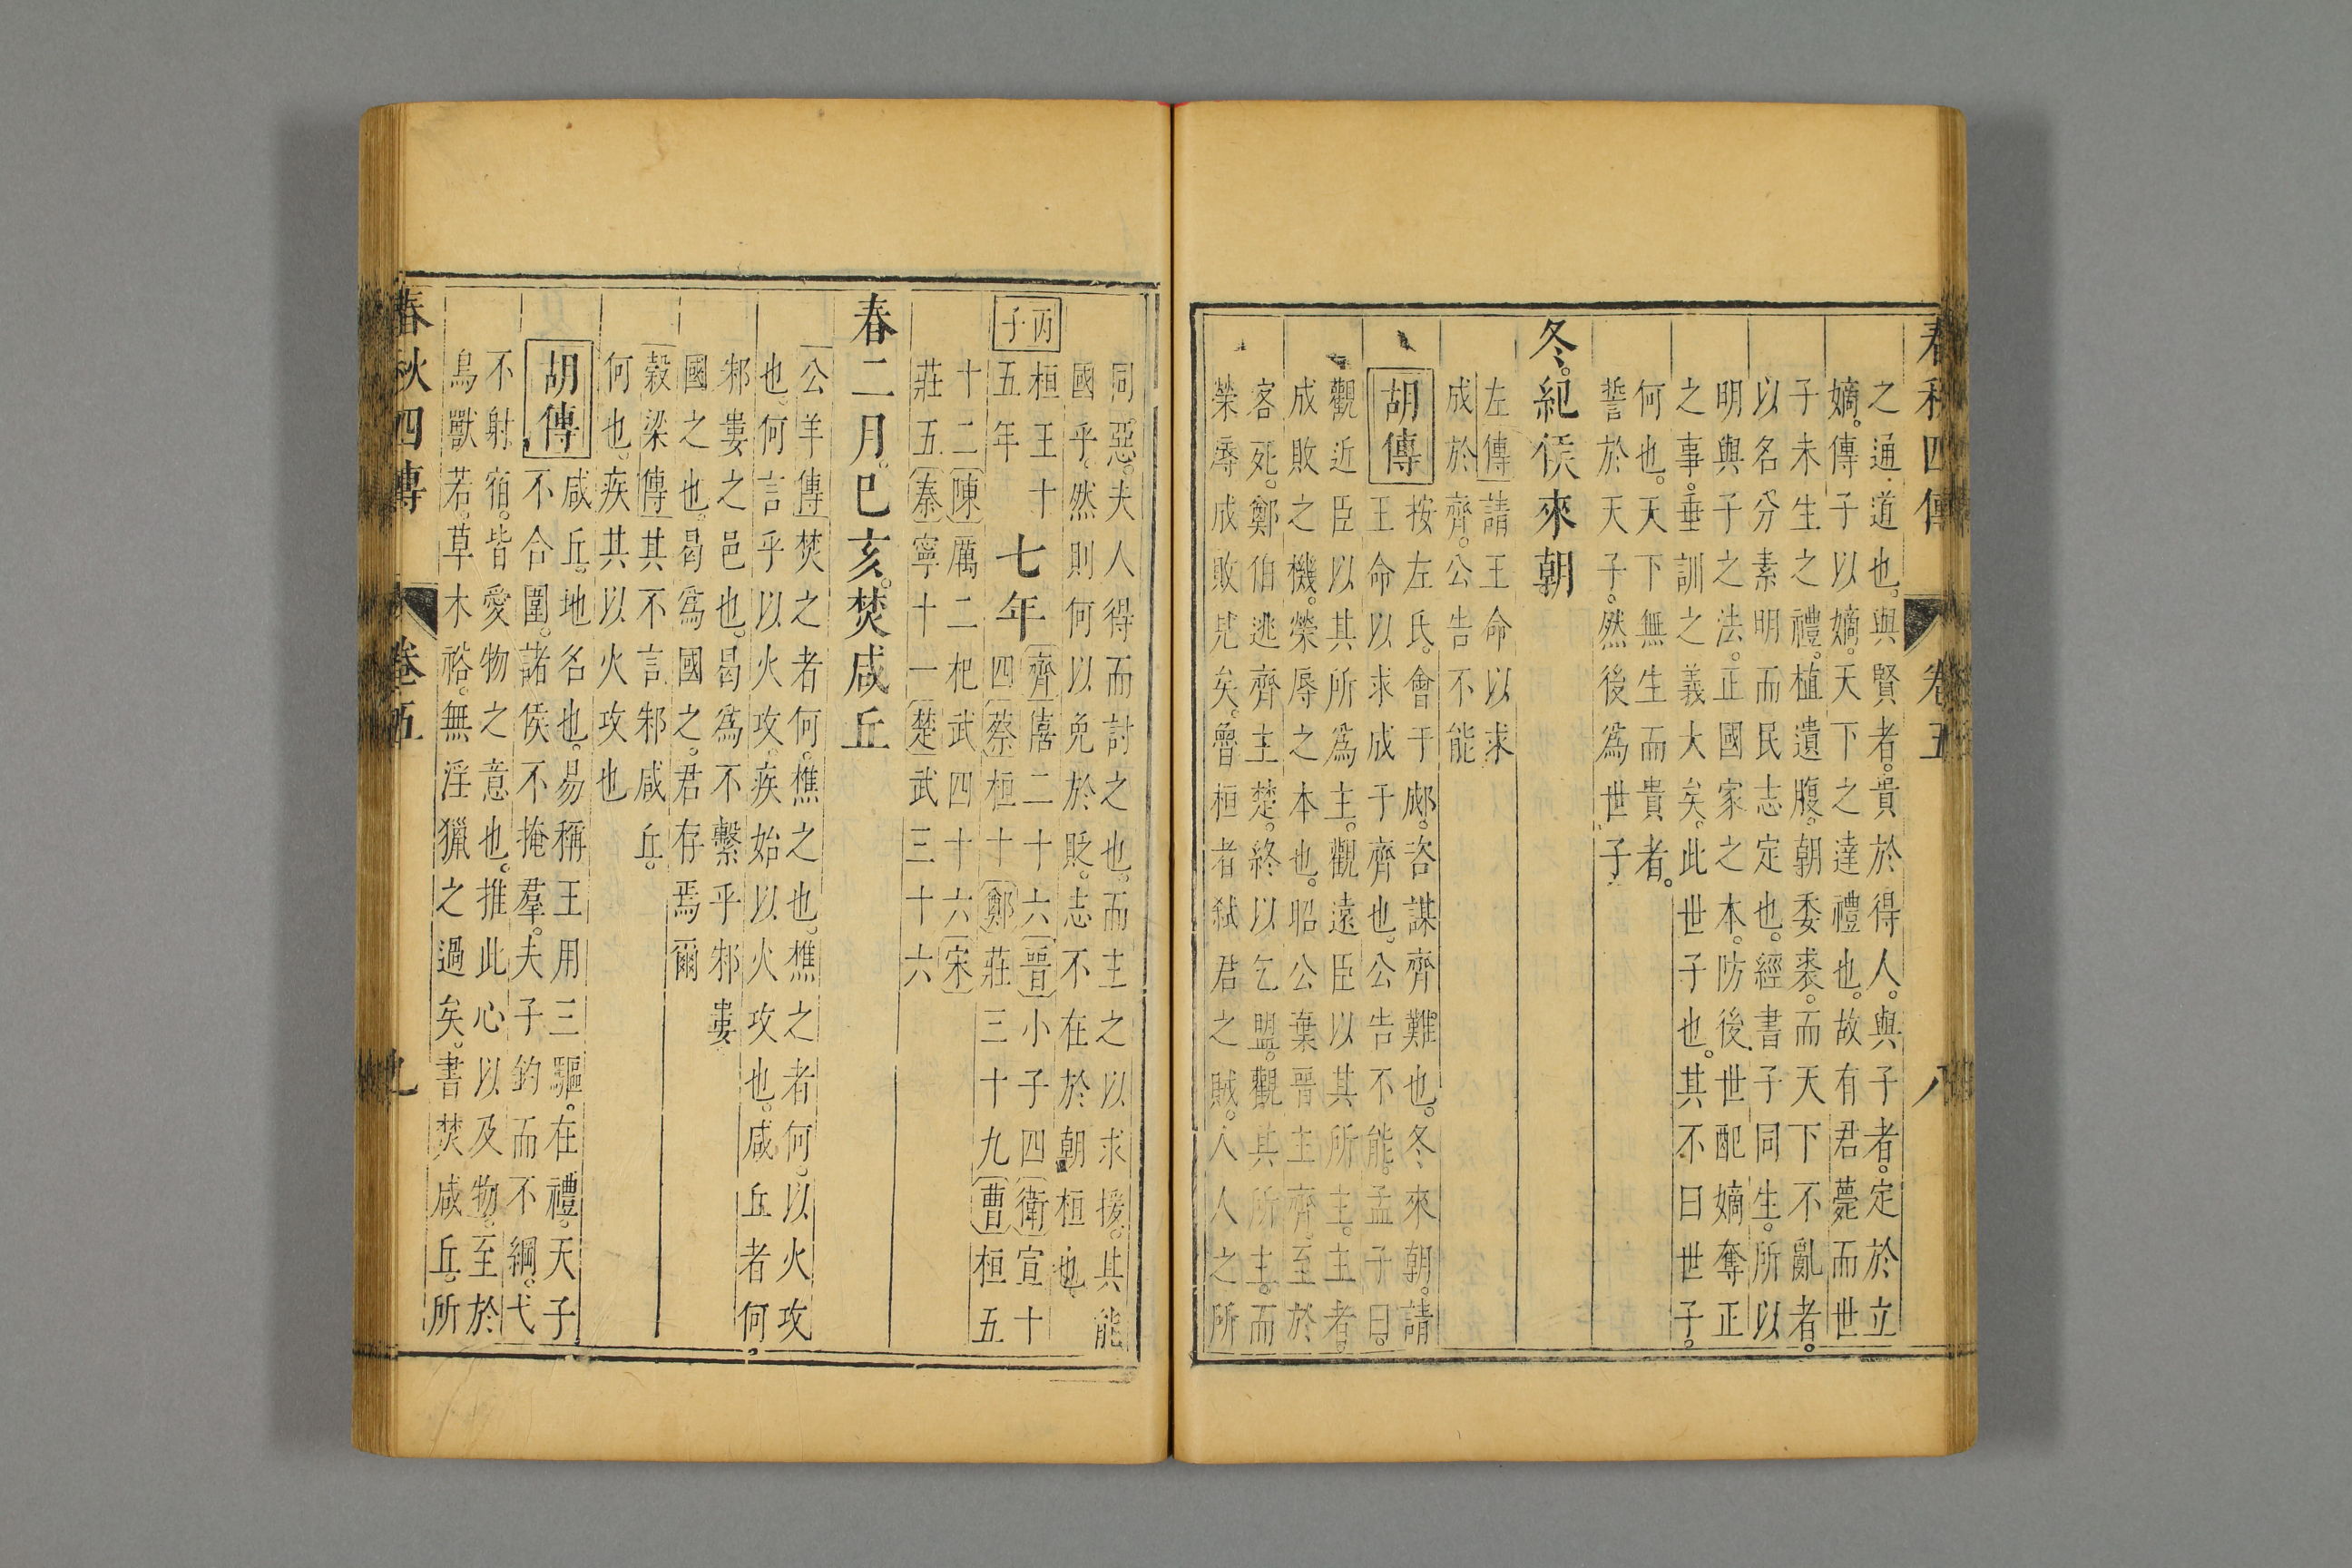 春秋四傳 卷五 八
之通道也。與賢者。貴於得人。與子者。定於立
嫡。傳子以嫡。天下之達禮也。故有君薨而世
子未生之禮。植遺腹。朝委裘。而天下不亂者。
以名分素明而民志定也。經書子同生。所以
明與子之法。正國家之本。防後世配嫡奪正
之事。垂訓之義大矣。此世子也。其不曰世子。
何也。天下無生而貴者。
誓於天子。然後爲世子。
冬。紀侯來朝。
左傳請王命以求
成於齊。公告不能
胡傳按左氏。會于郕。咨謀齊難也。冬來朝。請
王命以求成于齊也。公告不能。孟子曰。
觀近臣以其所爲主。觀遠臣以其所主。主者。
成敗之機。榮辱之本也。昭公棄晉主齊。至於
客死。鄭伯逃齊主楚。終以乞盟。觀其所主。而
榮辱成敗見矣。魯桓者弑君之賊。人人之所
同惡。夫人得而討之也。而主之以求援。其能
國乎。然則何以免於貶。志不在於朝桓也。
丙子
桓王十五年
七年
齊僖二十六晉小子四衛宣十
四蔡桓十鄭莊三十九曹桓五
十二陳厲二杞武四十六宋
莊五秦寧十一楚武三十六
春二月。己亥。焚咸丘
公羊傳焚之者何。樵之也。樵之者何。以火攻
也。何言乎以火攻。疾始以火攻也。咸丘者何。
邾婁之邑也。曷爲不繫乎邾婁
國之也。曷爲國之。君存焉爾
穀梁傳其不言邾咸丘。
何也。疾其以火攻也
胡傳咸丘。地名也。易稱王用三驅。在禮。天子
不合圍。諸侯不掩羣。夫子釣而不綱。弋
不射宿。皆愛物之意也。推此心以及物。至於
鳥獸若。草木裕。無淫獵之過矣。書焚咸丘。所
春秋四傳 卷五 九